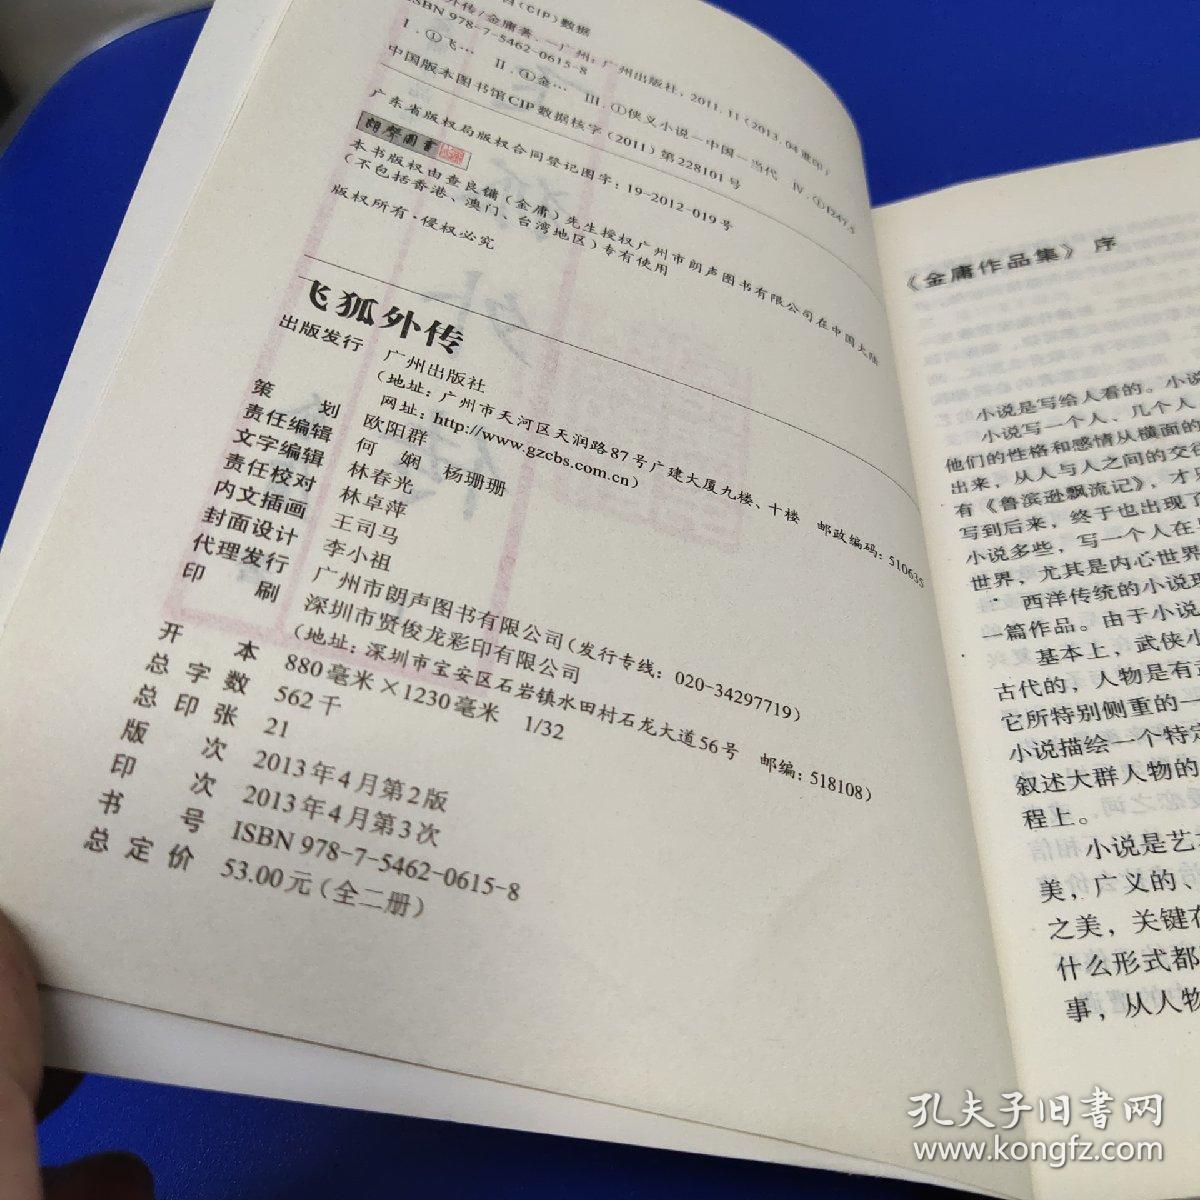 (CIP)数据
外传/金庸著.—广州:广州出版社,2011.11(2013.04重印)
ISBN 978-7-5462-0615-8
Ⅰ.①飞… Ⅱ.①金… Ⅲ.①侠义小说—中国—当代 Ⅳ.①I247.5
中国版本图书馆CIP数据核字(2011)第228101号
广东省版权局版权合同登记图字:19-2012-019号
朗声图书
本书版权由查良镛(金庸)先生授权广州市朗声图书有限公司在中国大陆
(不包括香港、澳门、台湾地区)专有使用
版权所有·侵权必究
飞狐外传
出版发行 广州出版社
(地址:广州市天河区天润路87号广建大厦九楼、十楼 邮政编码:510635
网址:http://www.gzcbs.com.cn)
策 划 欧阳群
责任编辑 何 娴 杨珊珊
文字编辑 林春光
责任校对 林卓萍
内文插画 王司马
封面设计 李小祖
代理发行 广州市朗声图书有限公司(发行专线:020-34297719)
印 刷 深圳市贤俊龙彩印有限公司
(地址:深圳市宝安区石岩镇水田村石龙大道56号 邮编:518108)
开 本 880毫米×1230毫米 1/32
总字数 562千
总印张 21
版 次 2013年4月第2版
印 次 2013年4月第3次
书 号 ISBN 978-7-5462-0615-8
总定价 53.00元(全二册)
《金庸作品集》序
小说是写给人看的。小说
小说写一个人、几个人、
他们的性格和感情从横面的
出来,从人与人之间的交往
有《鲁滨逊飘流记》,才只
写到后来,终于也出现了
小说多些,写一个人在
世界,尤其是内心世界
西洋传统的小说理
一篇作品。由于小说
基本上,武侠小
古代的,人物是有武
它所特别侧重的一
小说描绘一个特定
叙述大群人物的
程上。
小说是艺术
美,广义的、
之美,关键在
什么形式都
事,从人物
孔夫子旧书网
www.kongfz.com